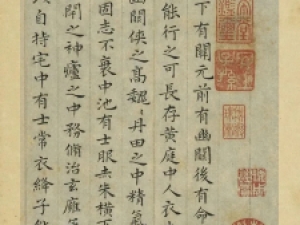 下有關元前有幽關後有命
能行之可長存黃庭中人衣
幽關俠之高魏〻丹田之中精氣
固志不衰中池有士服赤朱橫下
閒之神廬之中務脩治玄膺氣
自持宅中有士常衣絳子能